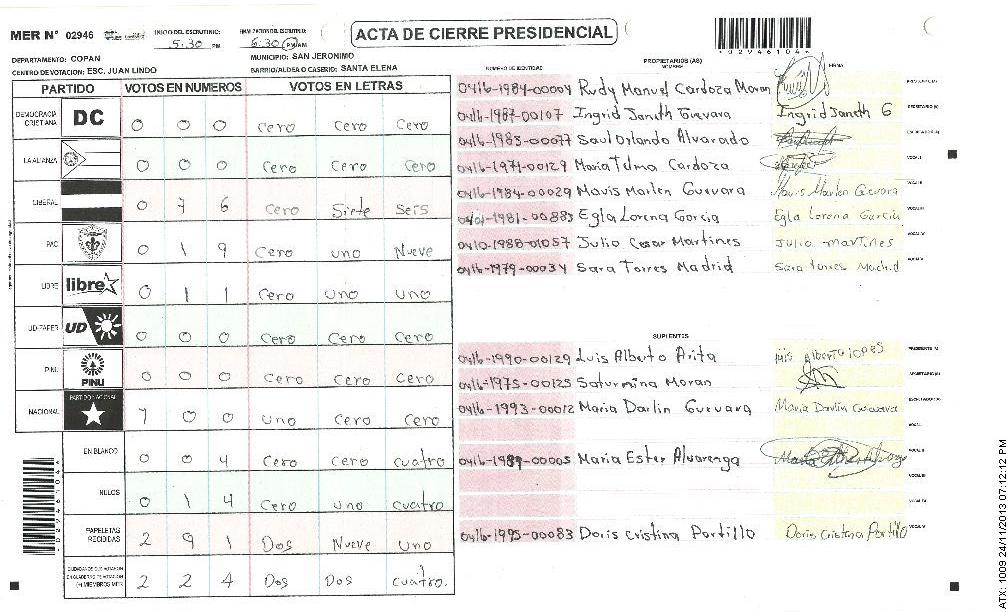 MER N° 02946 INICIO DEL ESCRUTINIO: 5:30 PM FINALIZACION DEL ESCRUTINIO: 6:30 PM/AM ACTA DE CIERRE PRESIDENCIAL
*02946104*
DEPARTAMENTO: COPAN MUNICIPIO: SAN JERONIMO
CENTRO DE VOTACION: ESC. JUAN LINDO BARRIO/ALDEA O CASERIO: SANTA ELENA
PARTIDO VOTOS EN NUMEROS VOTOS EN LETRAS
DEMOCRACIA CRISTIANA DC 0 0 0 Cero Cero Cero
LA ALIANZA 0 0 0 Cero Cero Cero
LIBERAL 0 7 6 Cero Siete Seis
PAC 0 1 9 Cero uno Nueve
LIBRE libre 0 1 1 Cero uno uno
UD-FAPER UD 0 0 0 Cero Cero Cero
PINU PINU 0 0 0 Cero Cero Cero
NACIONAL PARTIDO NACIONAL 1 0 0 uno Cero Cero
EN BLANCO 0 0 4 Cero Cero cuatro
NULOS 0 1 4 Cero uno cuatro
PAPELETAS RECIBIDAS 2 9 1 Dos Nueve uno
CIUDADANOS QUE VOTARON EN CUADERNO DE VOTACION (+) MIEMBROS MER 2 2 4 Dos Dos cuatro.
NUMERO DE IDENTIDAD PROPIETARIOS (AS) NOMBRE FIRMA
0416-1984-00004 Rudy Manuel Cardoza Moran PRESIDENTE (A)
0416-1987-00107 Ingrid Janeth Guevara Ingrid Janeth G SECRETARIO (A)
0416-1985-00077 Saul Orlando Alvarado ESCRUTADOR (A)
0416-1971-00129 Maria Telma Cardoza VOCAL I
0416-1984-00029 Mavis Marlen Guevara Mavis Marlen Guevara VOCAL II
0401-1981-00883 Egla Lorena Garcia Egla Lorena Garcia VOCAL III
0410-1988-01057 Julio Cesar Martines Julio martines VOCAL IV
0416-1979-00034 Sara Torres Madrid Sara torres Madrid VOCAL V
SUPLENTES
0416-1990-00129 Luis Alberto Arita luis Alberto lopes PRESIDENTE (A)
0416-1975-00125 Saturmina Moran SECRETARIO (A)
0416-1993-00012 Maria Darlin Guevara Maria Darlin Guevara ESCRUTADOR (A)
VOCAL I
0416-1989-00005 Maria Ester Alvarenga VOCAL II
VOCAL III
VOCAL IV
0416-1995-00083 Doris Cristina Portillo Doris Cristina Portillo VOCAL V
*02946104*
ATX: 1009 24/11/2013 07:12:12 PM